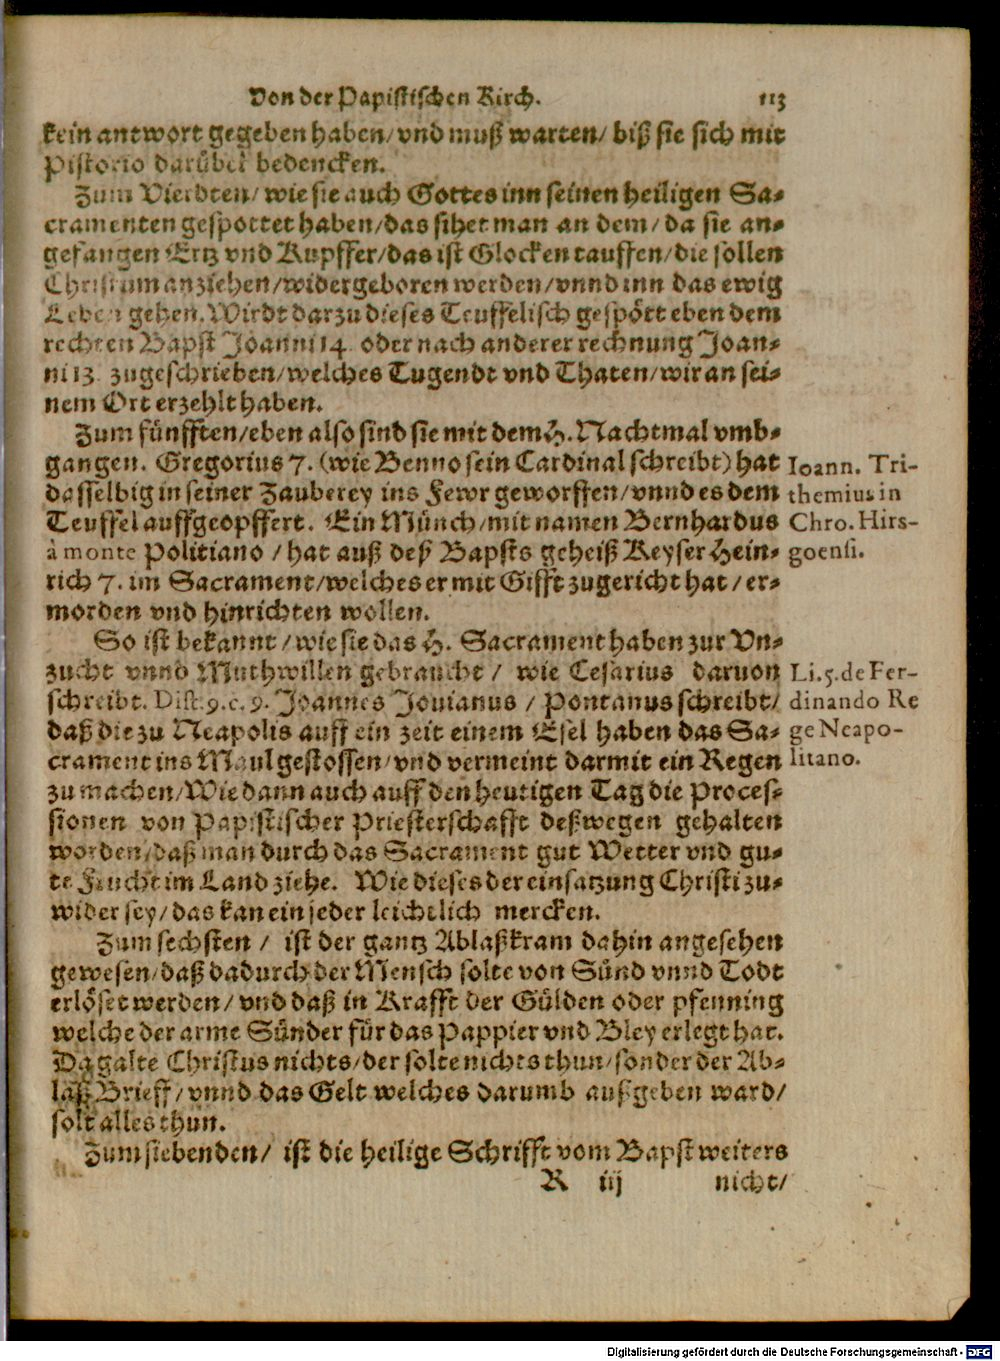 Von der Papistischen Kirch. 113
kein antwort gegeben haben/vnd muß warten/ biß sie sich mit
Pistorio darüber bedencken.
Zum Vierdten/wie sie auch Gottes inn seinen heiligen Sa-
cramenten gespottet haben/das sihet man an dem/da sie an-
gefangen Ertz vnd Kupffer/das ist Glocken tauffen/die sollen
Christum anziehen/widergeboren werden/vnnd inn das ewig
Leben gehen. Wirdt darzu dieses Teuffelisch gespött eben dem
rechten Bapst Joanni 14. oder nach anderer rechnung Joan-
ni 13. zugeschrieben/welches Tugendt vnd Thaten/wir an sei-
nem Ort erzehlt haben.
Zum fünfften/eben also sind sie mit dem H. Nachtmal vmb-
gangen. Gregorius 7. (wie Benno sein Cardinal schreibt) hat
dasselbig in seiner Zauberey ins Fewr geworffen/vnnd es dem
Teuffel auffgeopffert. Ein Münch/mit namen Bernhardus
à monte Politiano / hat auß deß Bapsts geheiß Keyser Hein-
rich 7. im Sacrament/welches er mit Gifft zugericht hat / er-
morden vnd hinrichten wollen.
Ioann. Tri-
themius in
Chro. Hirs-
goensi.
So ist bekannt / wie sie das H. Sacrament haben zur Vn-
zucht vnnd Muthwillen gebraucht / wie Cesarius daruon
schreibt. Dist. 9. c. 9. Joannes Jouianus / Pontanus schreibt/
daß die zu Neapolis auff ein zeit einem Esel haben das Sa-
crament ins Maul gestossen/vnd vermeint darmit ein Regen
zu machen/Wie dann auch auff den heutigen Tag die Proces-
sionen von Papistischer Priesterschafft deßwegen gehalten
worden/daß man durch das Sacrament gut Wetter vnd gu-
te Frucht im Land ziehe. Wie dieses der einsatzung Christi zu-
wider sey/das kan ein jeder leichtlich mercken.
Li. 5. de Fer-
dinando Re
ge Neapo-
litano.
Zum sechsten / ist der gantz Ablaßkram dahin angesehen
gewesen/daß dadurch der Mensch solte von Sünd vnnd Todt
erlöset werden/vnd daß in Krafft der Gülden oder pfenning
welche der arme Sünder für das Pappier vnd Bley erlegt hat.
Da galte Christus nichts/der solte nichts thun/sonder der Ab-
laß Brieff/vnnd das Gelt welches darumb außgeben ward/
solt alles thun.
Zum siebenden/ ist die heilige Schrifft vom Bapst weiters
R iij nicht/
Digitalisierung gefördert durch die Deutsche Forschungsgemeinschaft - DFG